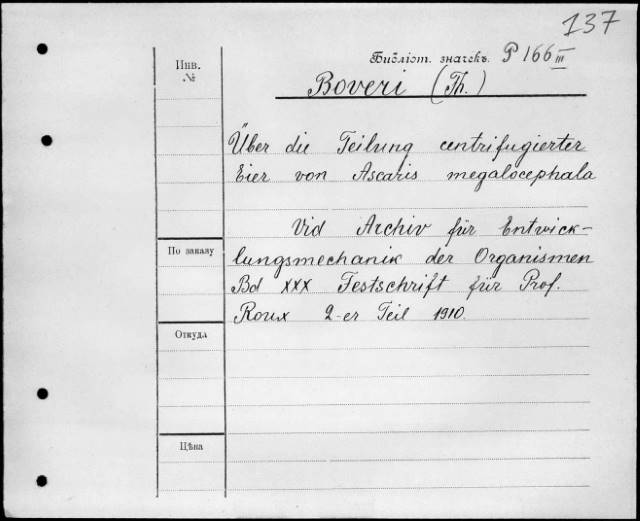 137
Инв.
№
Библіот. значекъ. P 166 III
Boveri (Th.)
Über die Teilung centrifugierter
Eier von Ascaris megalocephala
Vid Archiv für Entwick-
lungsmechanik der Organismen
Bd XXX Festschrift für Prof.
Roux 2-er Teil 1910.
По заказу
Откуда
Цѣна